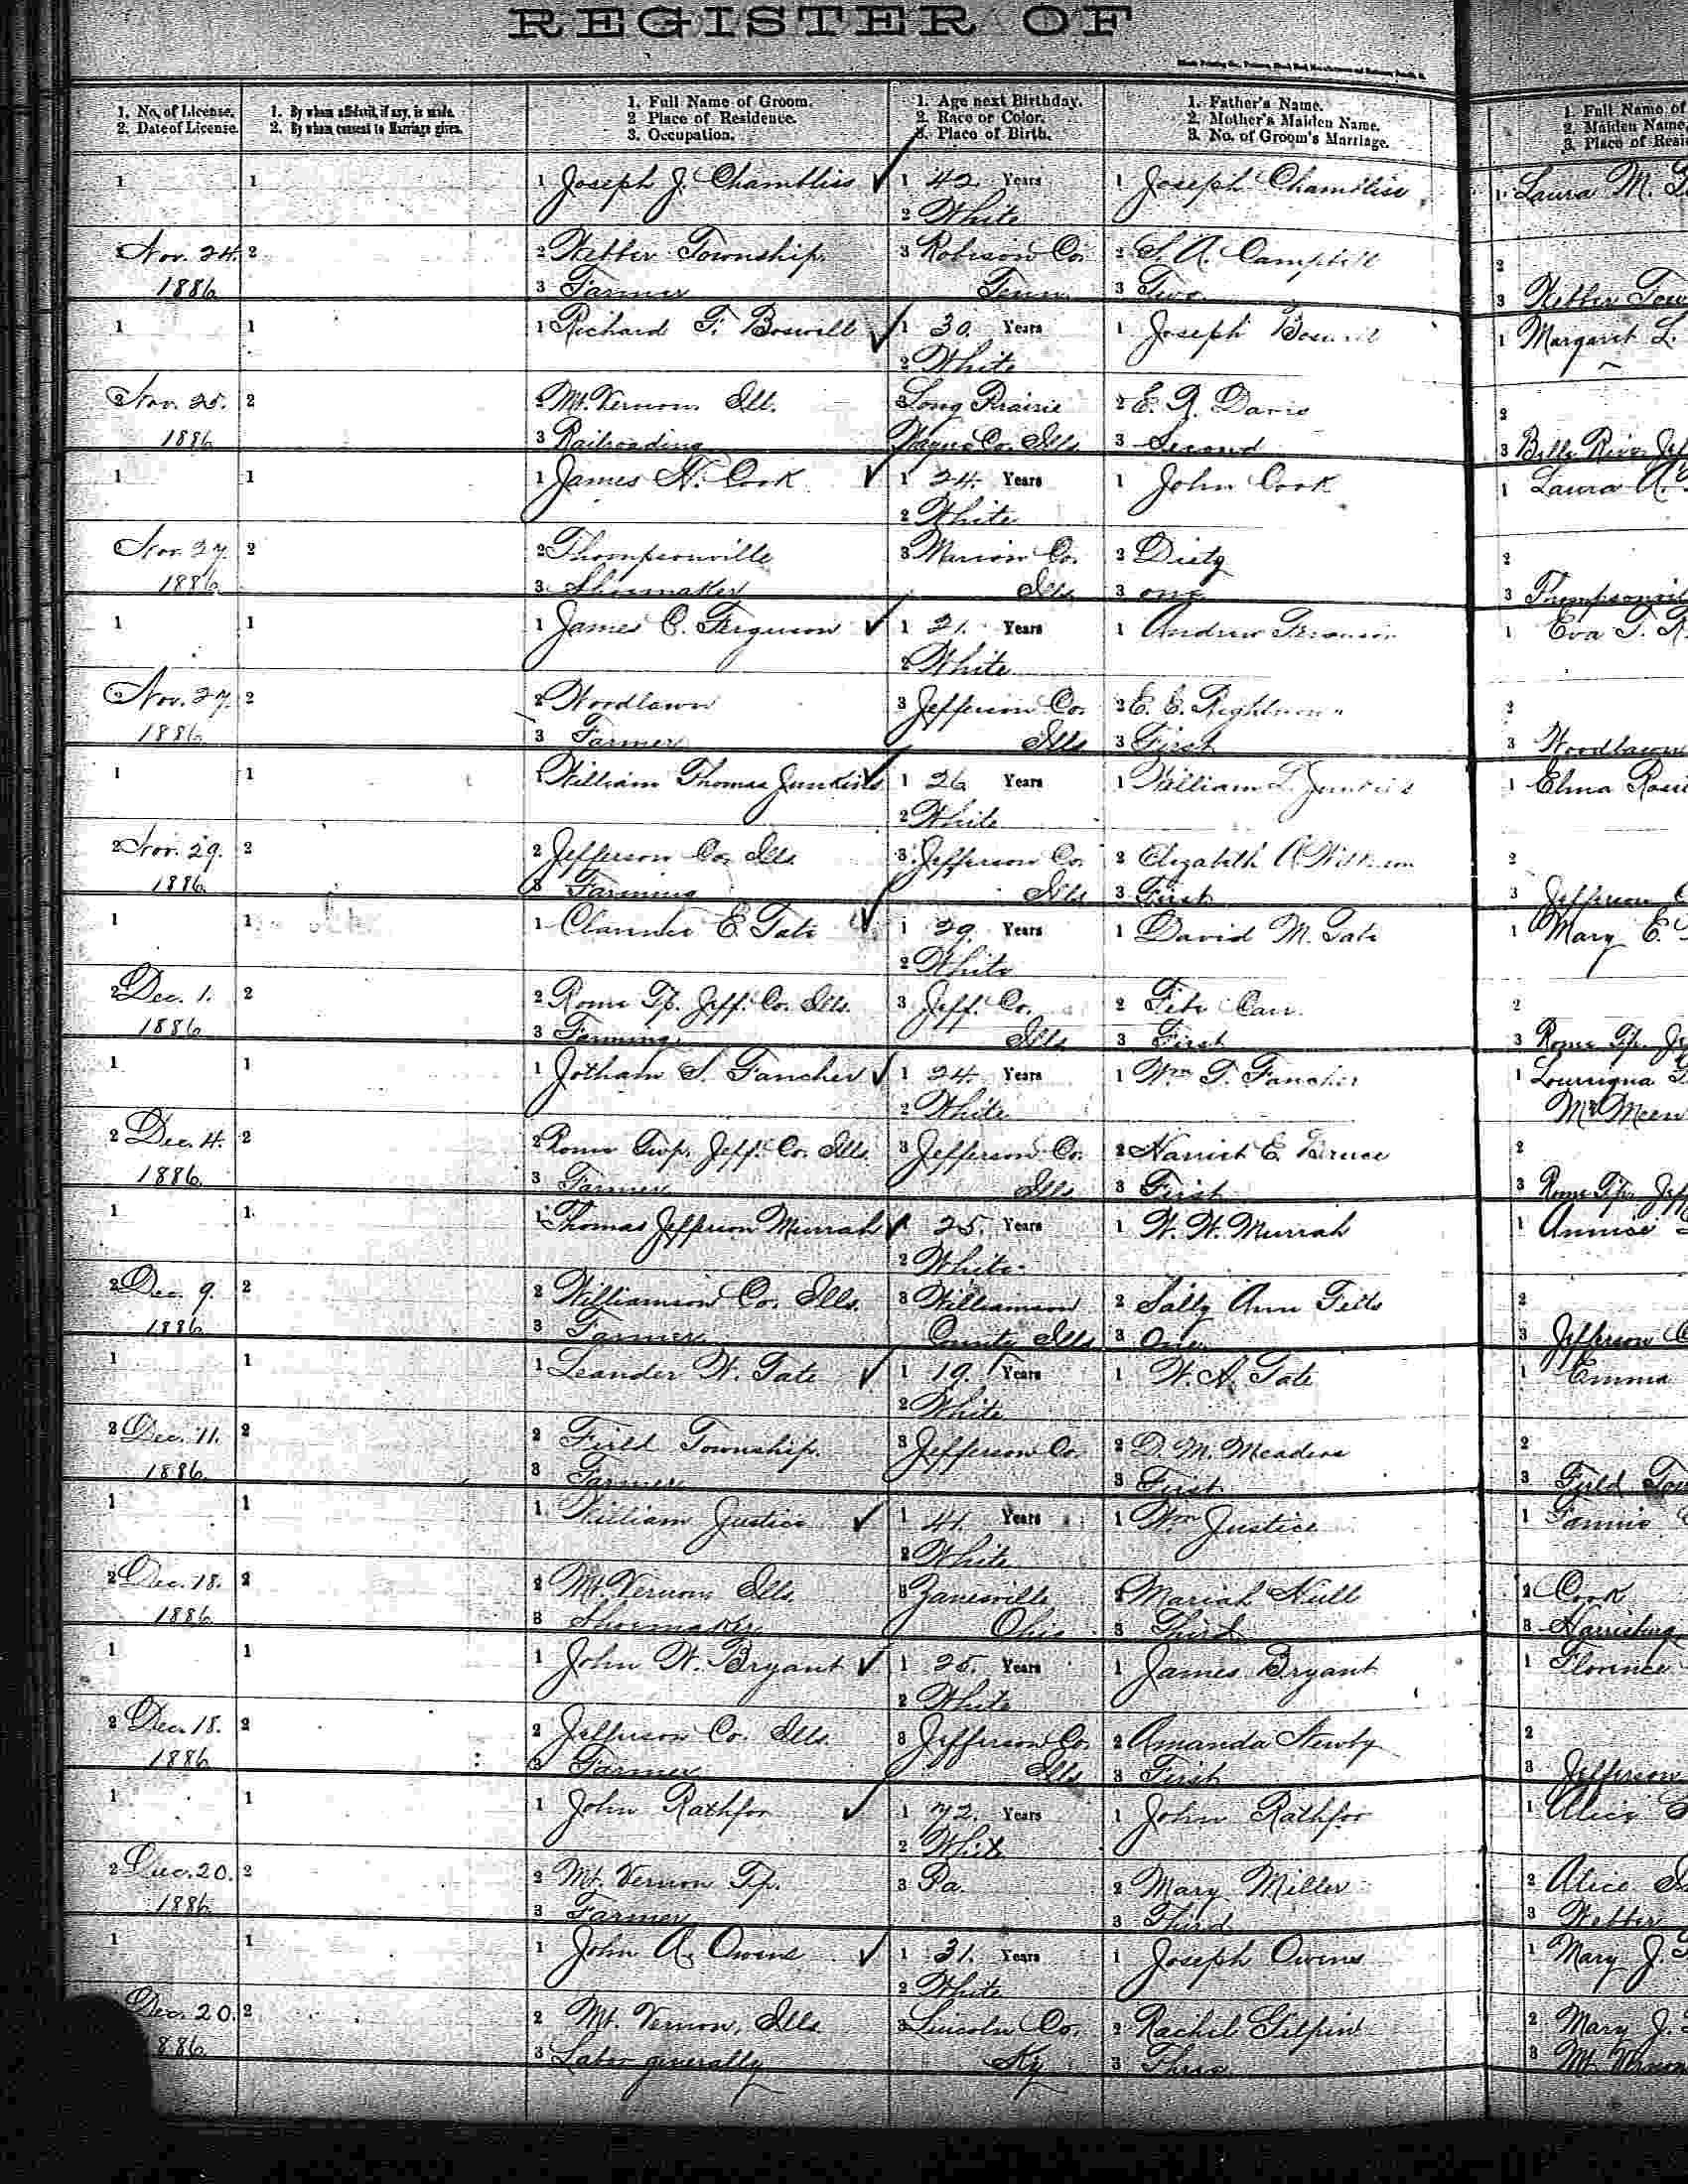 REGISTER OF
1. No. of License.
2. Date of License.
1. By whom affidavit, if any, is made.
2. By whom consent to Marriage given.
1. Full Name of Groom.
2 Place of Residence.
3. Occupation.
1. Age next Birthday.
2. Race or Color.
3. Place of Birth.
1. Father's Name.
2. Mother's Maiden Name.
3. No. of Groom's Marriage.
1. Full Name of
2. Maiden Name,
3. Place of Resi
1 1 1 Joseph J. Chambliss ✓ 1 42 Years 1 Joseph Chambliss 1 Laura M.
2 White
2 Nov. 24. 2 2 Webber Township. 3 Robison Co. 2 S. A. Campbell 2
1886 3 Farmer Tenn. 3 Two 3 Webber Tow
1 1 1 Richard T. Boswell ✓ 1 30 Years 1 Joseph Boswell 1 Margaret L.
2 White
2 Nov. 25. 2 2 Mt. Vernon Ill. 3 Long Prairie 2 E. R. Davis 2
1886 3 Railroading Wayne Co. Ills 3 Second 3
1 1 1 James H. Cook ✓ 1 24. Years 1 John Cook 1 Laura A.
2 White
2 Nov. 27. 2 2 Thompsonville 3 Marion Co. 2 Dietz 2
1886 3 Shoemaker Ills 3 one 3 Thompsonvil
1 1 1 James C. Ferguson ✓ 1 21. Years 1 Andrew 1 Eva T. R
2 White
2 Nov. 27. 2 2 Woodlawn 3 Jefferson Co. 2 E. E. 2
1886 3 Farmer Ills 3 First 3 Woodlawn
1 1 1 William Thomas Junkins ✓ 1 26 Years 1 William L. Junkins 1 Elma Rosie
2 White
2 Nov. 29. 2 2 Jefferson Co. Ills 3 Jefferson Co. 2 Elizabeth A. 2
1886 3 Farming Ills 3 First 3 Jefferson C
1 1 1 Clarence E. Tate ✓ 1 29. Years 1 David M. Tate 1 Mary E.
2 White
2 Dec. 1. 2 2 Rome Tp. Jeff. Co. Ills. 3 Jeff. Co. 2 Carr 2
1886 3 Farming Ills 3 First 3 Rome Tp. Je
1 1 1 Jotham S. Fancher ✓ 1 24. Years 1 Wm T. Fancher 1
2 White
2 Dec. 4. 2 2 Rome Twp. Jeff. Co. Ills. 3 Jefferson Co. 2 Harriet E. Bruce 2
1886 3 Farmer Ills 3 First 3 Rome Tp. Jeff
1 1 1 Thomas Jefferson Murrah ✓ 1 25. Years 1 W. W. Murrah 1
2 White
2 Dec. 9. 2 2 Williamson Co. Ills. 3 Williamson 2 Sally Ann Felts 2
1886 3 Farmer County Ills 3 One 3 Jefferson C
1 1 1 Leander W. Tate ✓ 1 19. Years 1 W. A. Tate 1 Emma
2 White
2 Dec. 11. 2 2 Field Township. 3 Jefferson Co. 2 D. M. Meadows 2
1886 3 Farmer 3 First 3 Field Tow
1 1 1 William Justice ✓ 1 41. Years 1 Wm Justice 1 Fannie
2 White
2 Dec. 18. 2 2 Mt. Vernon Ills. 3 Zanesville 2 Mariah Hull 2 Cook
1886 3 Shoemaker Ohio 3 Third 3 Harrisburg
1 1 1 John W. Bryant ✓ 1 25. Years 1 James Bryant 1 Florence
2 White
2 Dec. 18. 2 2 Jefferson Co. Ills. 3 Jefferson Co. 2 Amanda Newby 2
1886 3 Farmer Ills 3 First 3 Jefferson
1 1 1 John Rathfon ✓ 1 72. Years 1 John Rathfon 1 Alice
2 White
2 Dec. 20. 2 2 Mt. Vernon Tp. 3 Pa. 2 Mary Miller 2 Alice
1886 3 Farmer 3 Third 3 Webber
1 1 1 John A. Owens ✓ 1 31. Years 1 Joseph Owens 1 Mary J.
2 White
Dec. 20. 2 2 Mt. Vernon, Ills 3 Lincoln Co. 2 Rachel Gilpin 2 Mary J.
886 3 Labor generally Ky 3 Three 3 Mt. Vernon